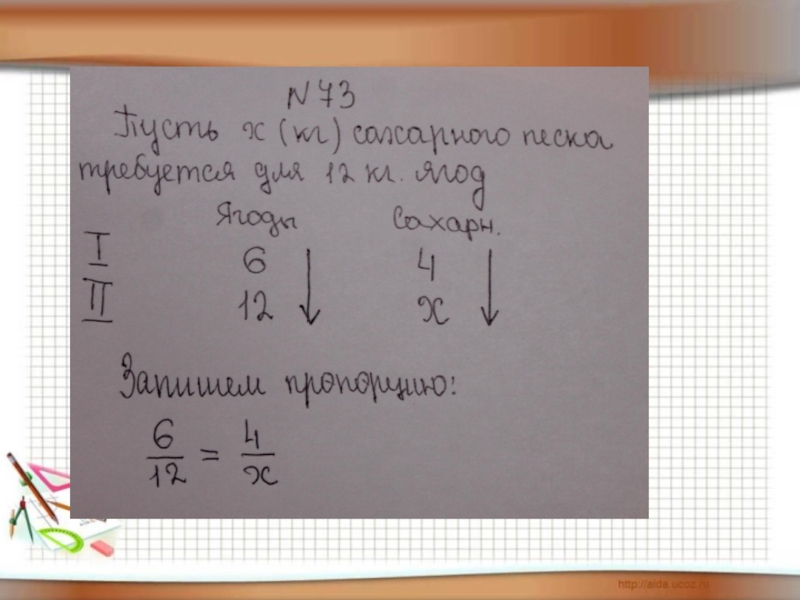 N 73
Пусть x (кг) сахарного песка
требуется для 12 кг. ягод
Ягоды Сахарн.
I 6 ↓ 4 ↓
II 12 x
Запишем пропорцию:
6/12 = 4/x
http://aida.ucoz.ru